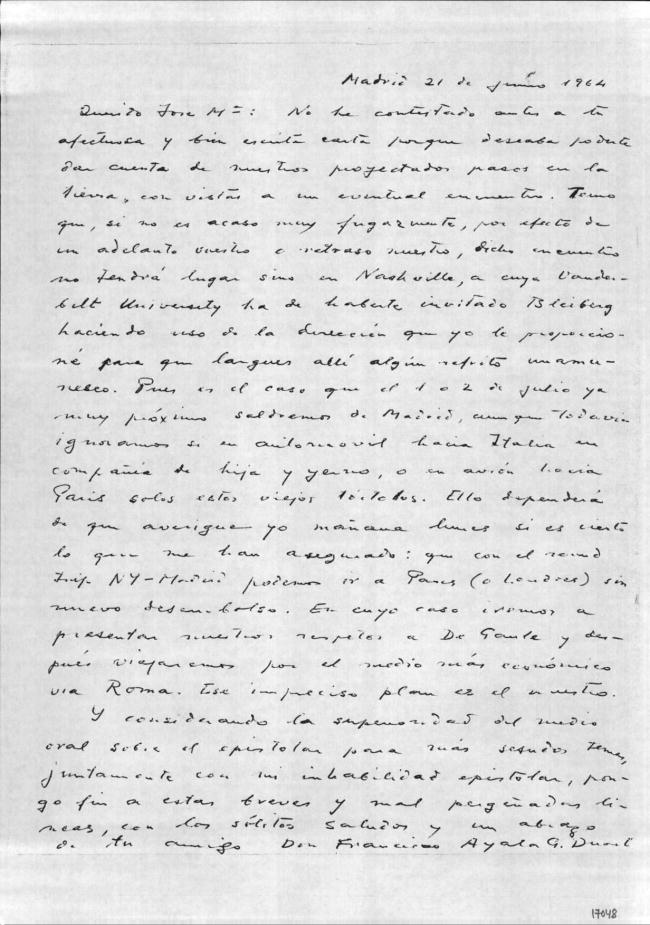 Madrid 21 de junio 1964
Querido Jose Mª: No he contestado antes a tu
afectuosa y bien escrita carta porque deseaba poderte
dar cuenta de nuestros proyectados pasos en la
tierra, con vistas a un eventual encuentro. Temo
que, si no es acaso muy fugazmente, por efecto de
un adelanto vuestro o retraso nuestro, dicho encuentro
no tendrá lugar sino en Nashville, a cuya Vander-
belt University ha de haberte invitado Bleiberg
haciendo uso de la dirección que yo le proporcio-
né para que largues allí algún refrito unamu-
nesco. Pues es el caso que el 1 o 2 de julio ya
muy próximo saldremos de Madrid, aunque todavía
ignoramos si en automovil hacia Italia en
compañía de hija y yerno, o en avión hacia
Paris solos estos viejos. Ello dependerá
de que averigue yo mañana lunes si es cierto
lo que me han asegurado: que con el round
trip NY-Madrid podemos ir a Paris (o Londres) sin
nuevo desembolso. En cuyo caso iremos a
presentar nuestros respetos a De Gaule y des-
pués viajaremos por el medio más económico
via Roma. Ese impreciso plan es el nuestro.
Y considerando la superioridad del medio
oral sobre el epistolar para más sesudos temas,
juntamente con mi inhabilidad epistolar, pon-
go fin a estas breves y mal pergeñadas lí-
neas, con los sólitos saludos y un abrazo
de tu amigo Don Francisco Ayala G. Duarte
17048